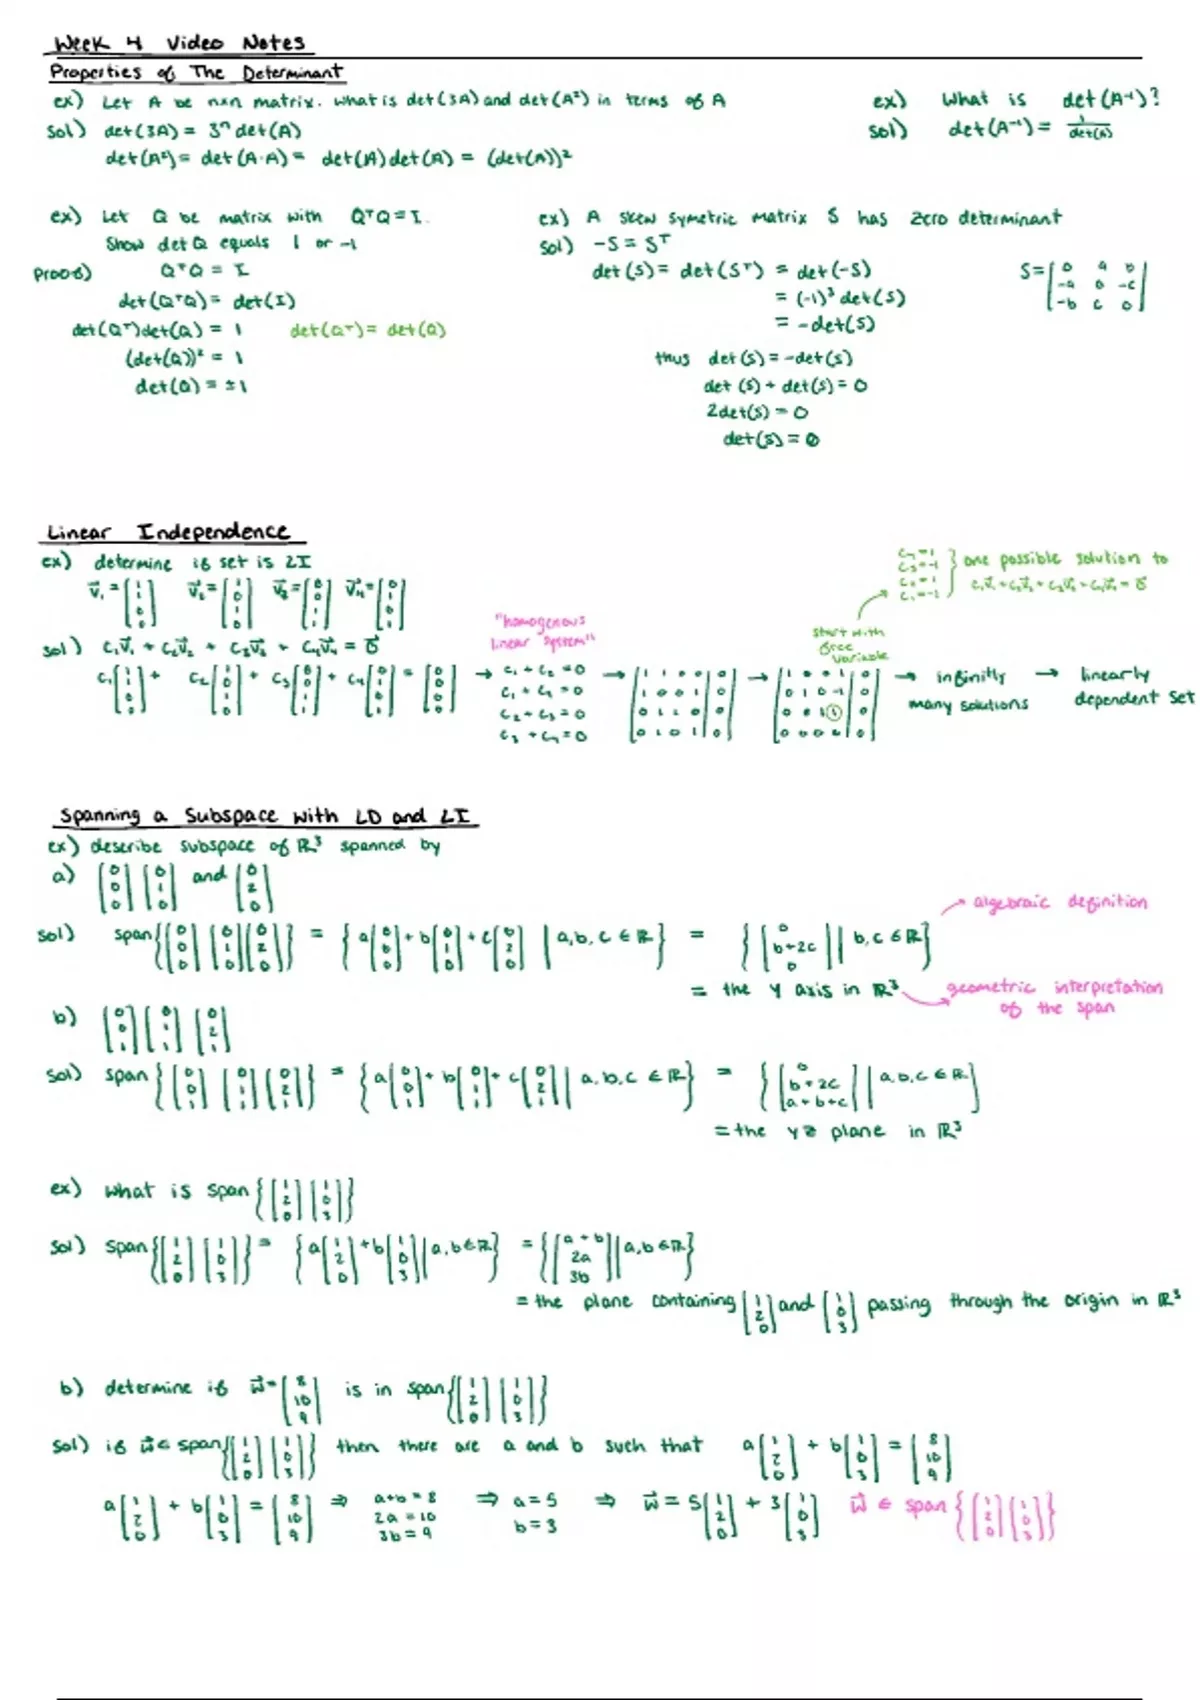 Week 4 Video Notes
Properties of The Determinant
ex) Let A be nxn matrix. What is det(3A) and det(A²) in terms of A
sol) det(3A) = 3ⁿ det(A)
det(A²) = det(A·A) = det(A)det(A) = (det(A))²
ex) What is det(A⁻¹)?
sol) det(A⁻¹) = 1/det(A)
ex) Let Q be matrix with QᵀQ = I.
Show det Q equals 1 or -1
Proof) QᵀQ = I
det(QᵀQ) = det(I)
det(Qᵀ)det(Q) = 1 det(Qᵀ) = det(Q)
(det(Q))² = 1
det(Q) = ±1
ex) A skew symetric matrix S has zero determinant
sol) -S = Sᵀ
det(S) = det(Sᵀ) = det(-S) S = [0 a b; -a 0 -c; -b c 0]
= (-1)³ det(S)
= -det(S)
thus det(S) = -det(S)
det(S) + det(S) = 0
2det(S) = 0
det(S) = 0
Linear Independence
ex) determine if set is LI
v⃗₁ = [1 1 0 0] v⃗₂ = [1 0 1 0] v⃗₃ = [0 0 1 1] v⃗₄ = [0 1 0 1]
sol) c₁v⃗₁ + c₂v⃗₂ + c₃v⃗₃ + c₄v⃗₄ = 0⃗
c₁[1 1 0 0] + c₂[1 0 1 0] + c₃[0 0 1 1] + c₄[0 1 0 1] = [0 0 0 0]
"homogenous
linear system"
→ c₁ + c₂ = 0
c₁ + c₄ = 0
c₂ + c₃ = 0
c₃ + c₄ = 0
→ [1 1 0 0 | 0; 1 0 0 1 | 0; 0 1 1 0 | 0; 0 0 1 1 | 0] → [1 0 0 1 | 0; 0 1 0 -1 | 0; 0 0 1 1 | 0; 0 0 0 0 | 0] → infinitly many solutions → linearly dependent set
start with
free
variable
c₄ = 1
c₃ = -1
c₂ = 1
c₁ = -1
} one possible solution to
c₁v⃗₁ + c₂v⃗₂ + c₃v⃗₃ + c₄v⃗₄ = 0⃗
Spanning a Subspace with LD and LI
ex) describe subspace of ℝ³ spanned by
a) [0 0 0] [0 1 0] and [0 2 0]
sol) span{[0 0 0] [0 1 0] [0 2 0]} = {a[0 0 0] + b[0 1 0] + c[0 2 0] | a,b,c ∈ ℝ} = {[0 b+2c 0] | b,c ∈ ℝ}
→ algebraic definition
= the y axis in ℝ³ → geometric interpretation
of the span
b) [0 0 1] [0 1 1] [0 2 1]
sol) span{[0 0 1] [0 1 1] [0 2 1]} = {a[0 0 1] + b[0 1 1] + c[0 2 1] | a,b,c ∈ ℝ} = {[0 b+2c a+b+c] | a,b,c ∈ ℝ}
= the yz plane in ℝ³
ex) what is span{[1 2 0] [1 0 3]}
sol) span{[1 2 0] [1 0 3]} = {a[1 2 0] + b[1 0 3] | a,b ∈ ℝ} = {[a+b 2a 3b] | a,b ∈ ℝ}
= the plane containing [1 2 0] and [1 0 3] passing through the origin in ℝ³
b) determine if w⃗ = [8 10 9] is in span{[1 2 0] [1 0 3]}
sol) if w⃗ ∈ span{[1 2 0] [1 0 3]} then there are a and b such that a[1 2 0] + b[1 0 3] = [8 10 9]
a[1 2 0] + b[1 0 3] = [8 10 9] ⇒ a+b = 8 2a = 10 3b = 9 ⇒ a = 5 b = 3 ⇒ w⃗ = 5[1 2 0] + 3[1 0 3] w⃗ ∈ span{[1 2 0] [1 0 3]}